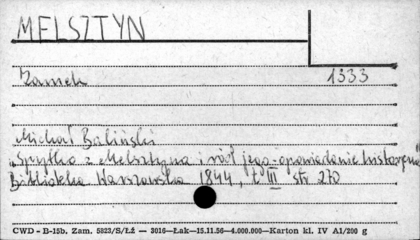 MELSZTYN
Zamek 1333
Michał Baliński
"Spytko z Melsztyna i ród jego - opowiadanie historyczne
Biblioteka Warszawska 1844, t III str 270
CWD - B-15b. Zam. 5823/S/Łź — 3016—Łak—15.11.56—4.000.000—Karton kl. IV A1/200 g